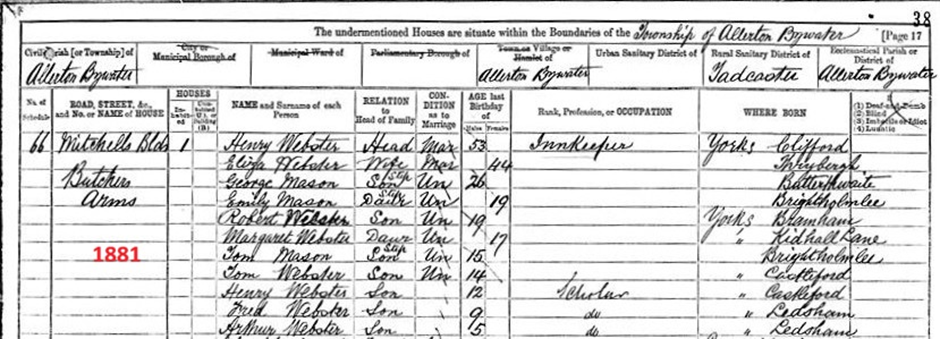 38
The undermentioned Houses are situate within the Boundaries of the Township of Allerton Bywater [Page 17
Civil Parish [or Township] of City or Municipal Borough of Municipal Ward of Parliamentary Borough of Town or Village or Hamlet of Urban Sanitary District of Rural Sanitary District of Ecclesiastical Parish or District of
Allerton Bywater Allerton Bywater Tadcaster Allerton Bywater
No. of Schedule ROAD, STREET, &c., and No. or NAME of HOUSE HOUSES Inhabited (B.) NAME and Surname of each Person RELATION to Head of Family CONDITION as to Marriage AGE last Birthday of Males Females Rank, Profession, or OCCUPATION WHERE BORN (1) Deaf-and-Dumb (2) Blind (3) Imbecile or Idiot (4) Lunatic
66 Mitchells Blds 1 Henry Webster Head Mar 53 Innkeeper Yorks Clifford
Eliza Webster Wife Mar 44 Thrybergh
Butchers George Mason Step Son Un 26 Butterthwaite
Arms Emily Mason Step Daur Un 19 Brightholmlee
Robert Webster Son Un 19 Yorks Bramham
Margaret Webster Daur Un 17 " Kidhall Lane
1881 Tom Mason Step Son Un 15 Brightholmlee
Tom Webster Son Un 14 " Castleford
Henry Webster Son 12 Scholar " Castleford
Fred Webster Son 9 do " Ledsham
Arthur Webster Son 5 do " Ledsham